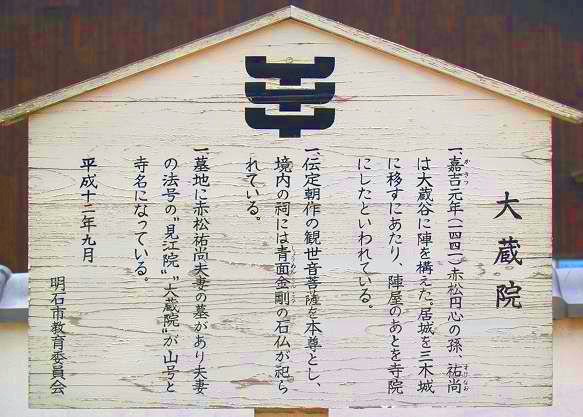 大蔵院
一、嘉吉元年(一四四一)赤松円心の孫、祐尚
かきつ
すけなお
は大蔵谷に陣を構えた。居城を三木城
に移すにあたり、陣屋のあとを寺院
にしたといわれている。
一、伝定朝作の観世音菩薩を本尊とし、
境内の祠には青面金剛の石仏が祀ら
れている。
一、墓地に赤松祐尚夫妻の墓があり夫妻
の法号の"見江院""大蔵院"が山号と
寺名になっている。
平成十二年九月
明石市教育委員会